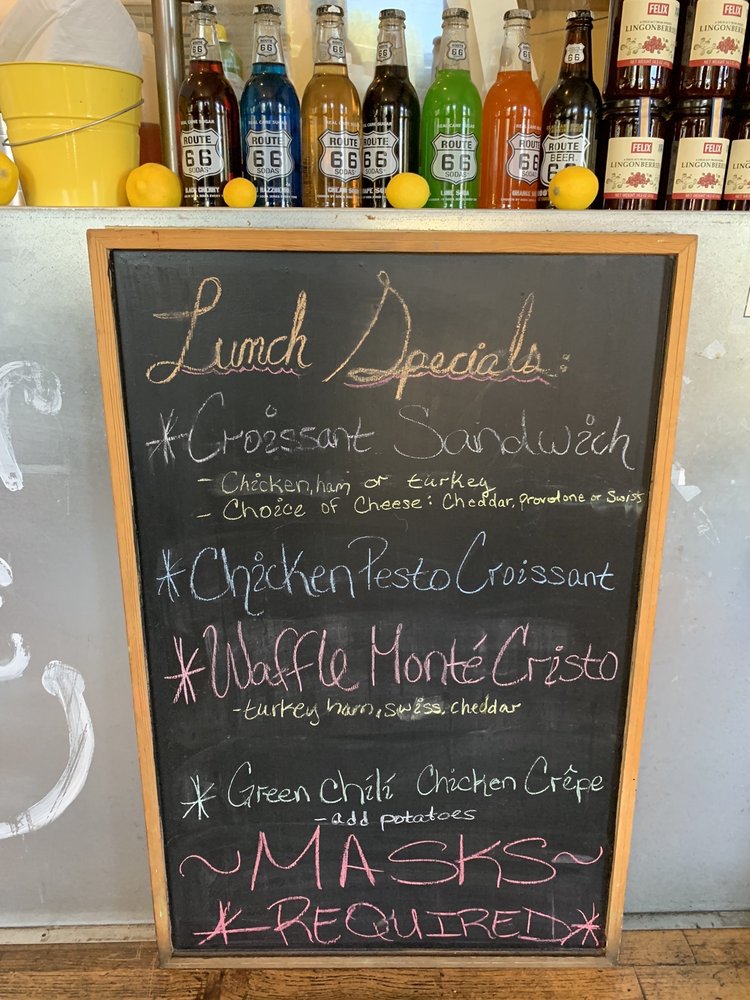 REAL CANE SUGAR
ROUTE 66 SODAS
BLACK CHERRY
ROUTE 66 SODAS
ROUTE 66 SODAS
CREAM SODA
ROUTE 66 SODAS
ROUTE 66 SODAS
LIME SODA
ROUTE 66 SODAS
ROUTE BEER 66
FELIX
LINGONBERRIES
FELIX
LINGONBERRIES
FELIX
FELIX
Lunch Specials:
*Croissant Sandwich
- Chicken, ham or turkey
- Choice of Cheese: Cheddar, provolone or Swiss
*Chicken Pesto Croissant
*Waffle Monté Cristo
-turkey ham, swiss, cheddar
*Green chili Chicken Crêpe
-add potatoes
~MASKS~
*REQUIRED*